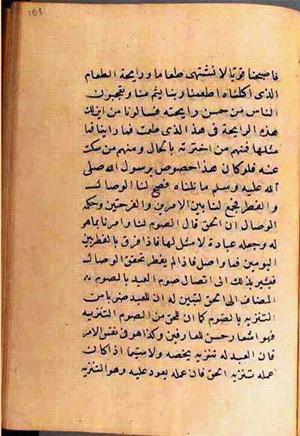 فاصبحنا قريا لا نشتهى طعاما ورايحة الطعام
الذى اكلناه اطعمنا وبنا يشم منا ويتعجبون
الناس من حسن رايحته فسالونا من اين لك
هذه الرايحة فى هذا الذى طعمت فما راينا
مثلها فمنهم من اخبرته بالحال ومنهم من سكت
عنه فلو كان هذا خصوص برسول الله صلى
الله عليه وسلم ما نلناه فصح لنا الوصال
والفطر فجمع لنا بين الامرين والفرحتين وحكمة
الوصال ان الحق قال الصوم لنا وامرنا بما هو
له وجعله عبادة لا مثل لها فاذا فرق بالفطر بين
اليومين فما واصل فاذا لم يفطر تحقق الوصال
فيشير بذلك الى اتصال صوم العبد بالصوم
المضاف الى الحق لتبين له ان للعبد ضربا من
التنزيه بالصوم كما ان للحق من الصوم التنزيه
فهو اشعار حسن للعارفين وكذا هو فى نفس الامر
فان العبد له تنزيه يخصه ولا سيما اذا كان
عمله تنزيه الحق فان عمله يعود عليه وهو التنزيه